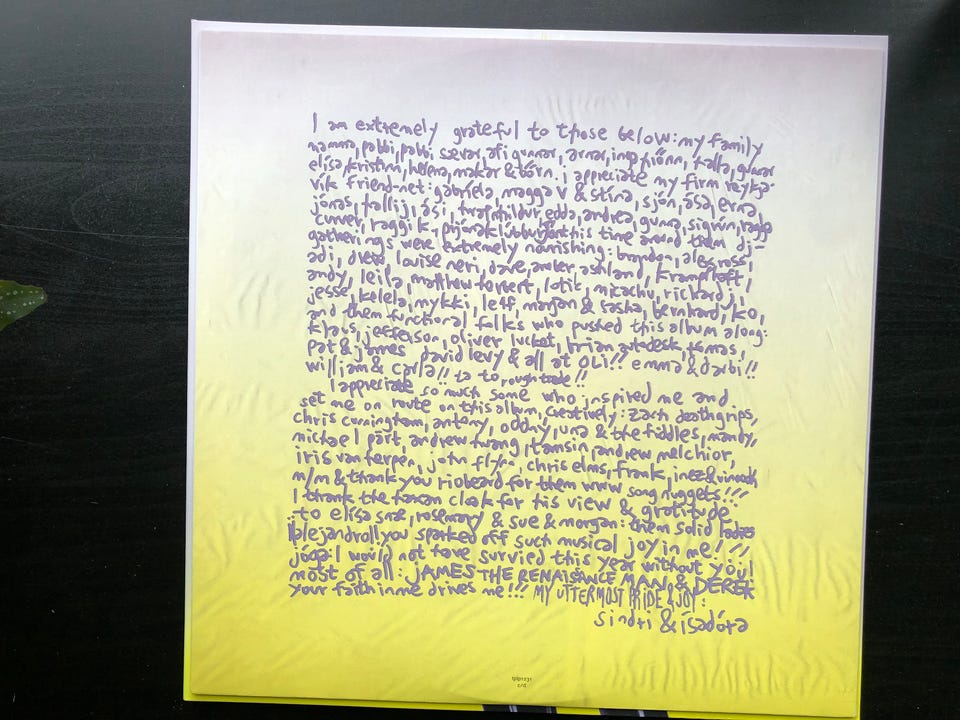 I am extremely grateful to those below: my family
mamma, pabbi, pabbi sævar, afi gunnar, arnar, inga, fjönn, halla, gunnar
elísa, kristinn, helena, makar & börn. i appreciate my firm reykja-
vík friend-net: gabríela, magga v & stína, sjón, ása, erna,
jónas, hallij, ási, hrafnhildur, edda, andrea, gunna, sigrún, ragga
raggi k. this time around them dj-
gatherings were extremely nourishing: brandon, alex ross,
adi, drew, louise neri, dave, amber, ashland, krampfhaft,
andy, leila, matthew herbert, lotic, micachu, richard j,
jesse, kelela, mykki, leif, marjan & sasha, bernhard, ko,
and them functional folks who pushed this album along:
klaus, jefferson, oliver lucket, brian autodesk, tomas,
pat & james, david levy & all at OLi!! emma & darbi!!
william & carla!! ta to rough trade!!
I appreciate so much some who inspired me and
set me on route on this album, creatively: zach deathgrips,
chris cunningham, antony, oddný, una & the fiddles, mandy,
michael pärt, andrew twang, tamsin, andrew melchior,
iris van herpen, john chris elms, frank, inez & vinoodh
m/m & thank you riobeard for them www song nuggets!!!
I thank the cloak for his view & gratitude
to elísa snæ, rosemary & sue & morgan: them solid ladies
alejandro!! you sparked off such musical joy in me! //
jóga: I would not have survied this year without you!
most of all: JAMES THE RENAISANCE MAN & DEREK
your faith in me drives me!!! MY UTTERMOST PRIDE & JOY:
sindri & ísadóra
tplp1231
c/d